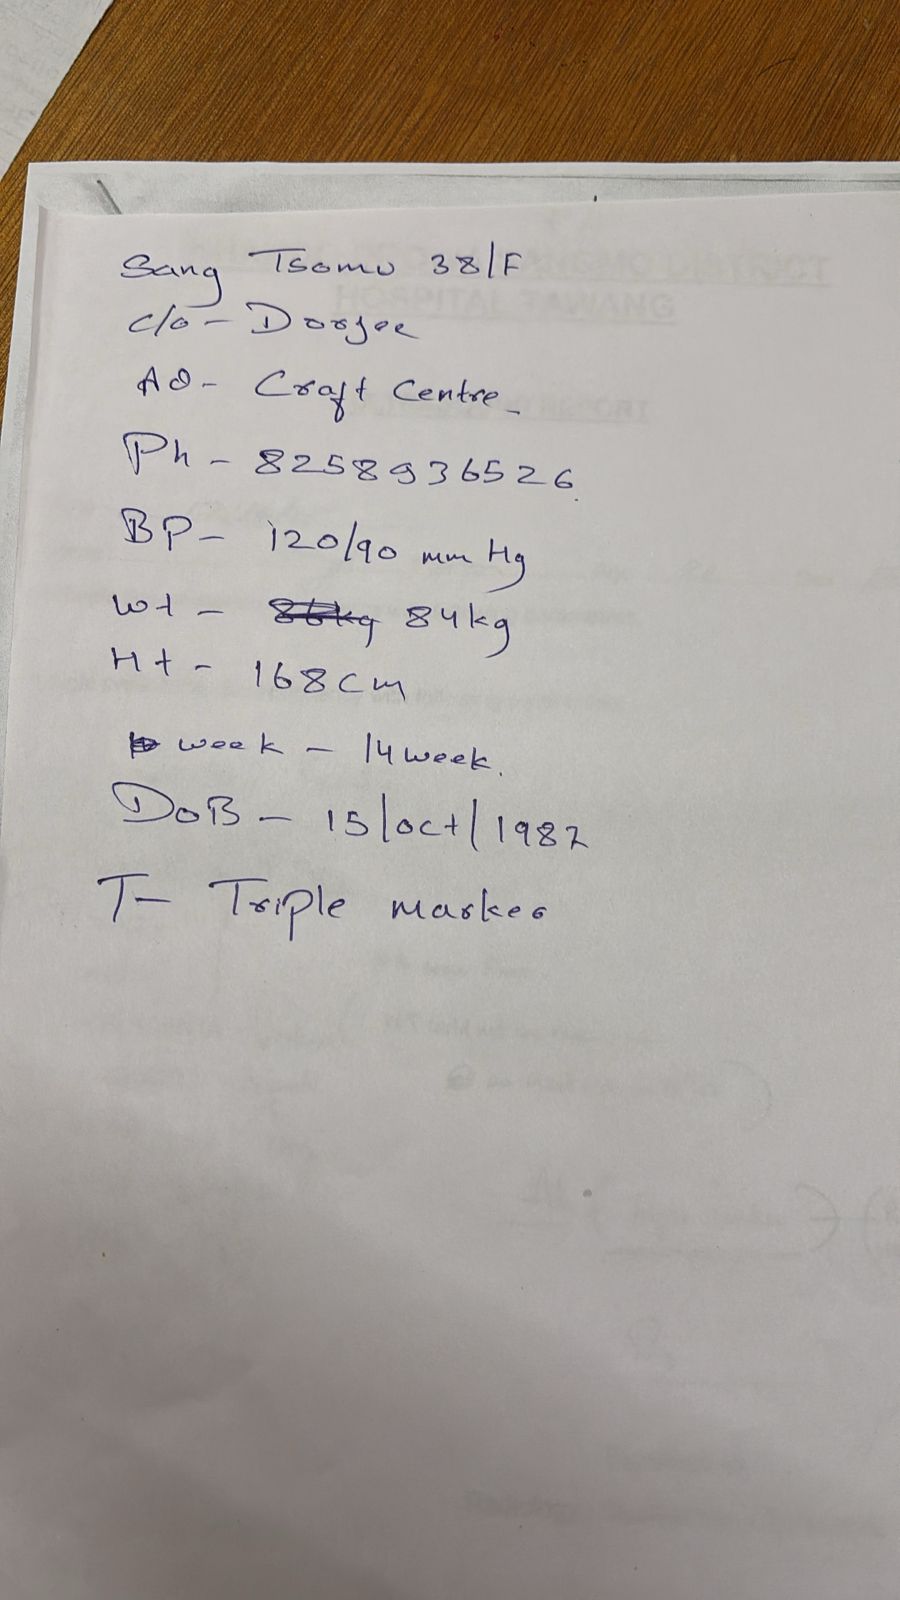 Sang Tsomu 38/F
c/o - Dorjee
Ad - Craft Centre
Ph - 8258936526
BP - 120/90 mm Hg
wt - 84kg
Ht - 168cm
week - 14 week.
DoB - 15/oct/1987
T- Triple marker